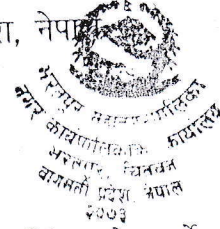 श, नेपाल
भरतपुर महानगरपालिका
नगर कार्यपालिकाको कार्यालय
भरतपुर, चितवन
बागमती प्रदेश, नेपाल
२०७३